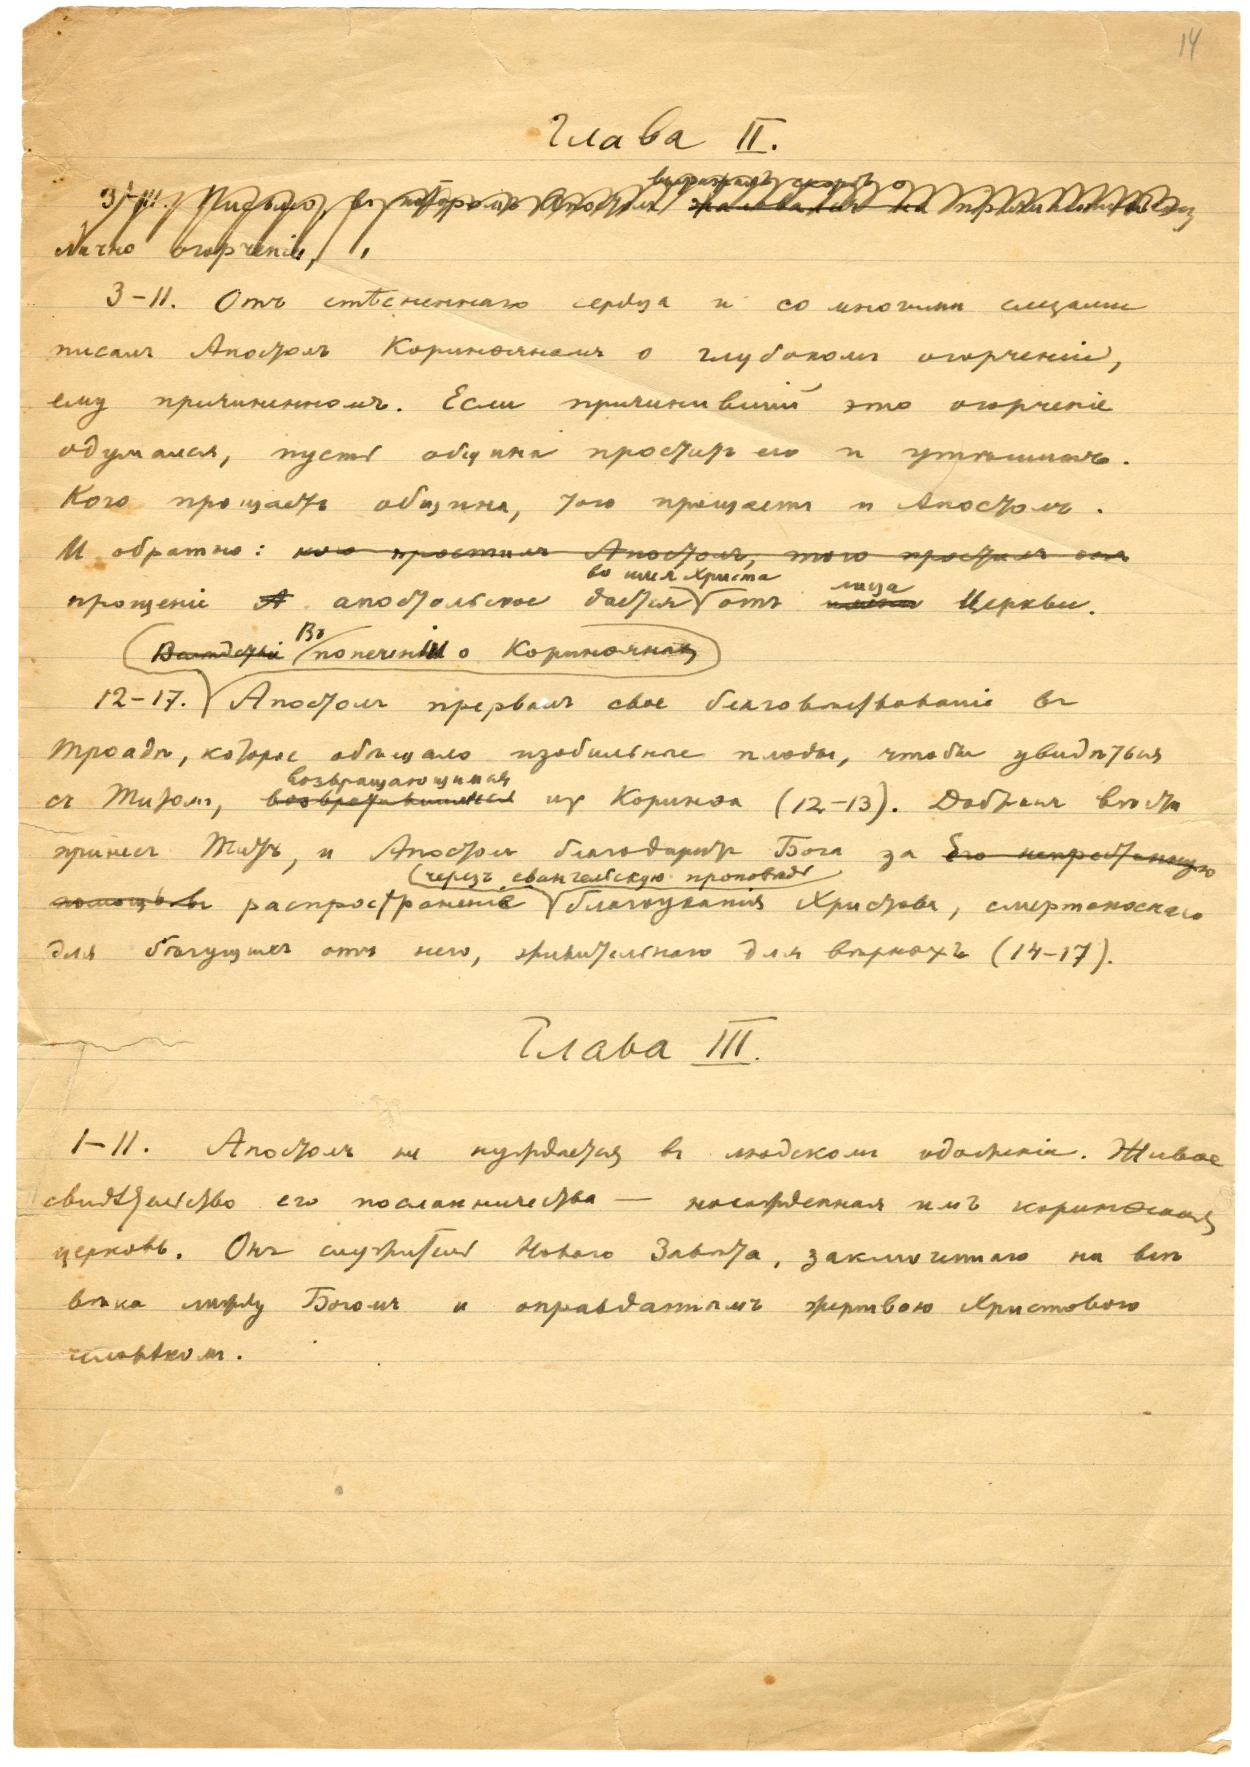 14
Глава II.
выражалъ скорбь о
3–11. Письмо, въ которомъ Апостолъ жаловался на
лично огорченіе,
3–11. Отъ стѣсненнаго сердца и со многими слезами
писалъ Апостолъ Коринѳянамъ о глубокомъ огорченіи,
ему причиненномъ. Если причинившій это огорченіе
одумался, пусть община проститъ его и утѣшитъ.
Кого прощаетъ община, того прощаетъ и Апостолъ.
И обратно: кого простилъ Апостолъ, того простилъ
во имя Христа лица
прощеніе А апостольское дается отъ имени Церкви.
Въ
попеченіи о Коринѳянахъ
12–17. Апостолъ прервалъ свое благовѣствованіе въ
Троадѣ, которое обѣщало изобильные плоды, чтобы увидѣться
возвращающимся
съ Титомъ, возвратившимся изъ Коринѳа (12–13). Добрыя вѣсти
принесъ Титъ, и Апостолъ благодаритъ Бога за Его непрестанную
черезъ евангельскую проповѣдь
помощь въ распространеніе благоуханія Христова, смертоноснаго
для бѣгущихъ отъ него, живительнаго для вѣрныхъ (14–17).
Глава III.
1–11. Апостолъ не нуждается въ людскомъ одобреніи. Живое
свидѣтельство его посланничества — насажденная имъ коринѳская
церковь. Онъ служитель Новаго Завѣта, заключеннаго на всѣ
вѣка между Богомъ и оправданнымъ жертвою Христовою
человѣкомъ.